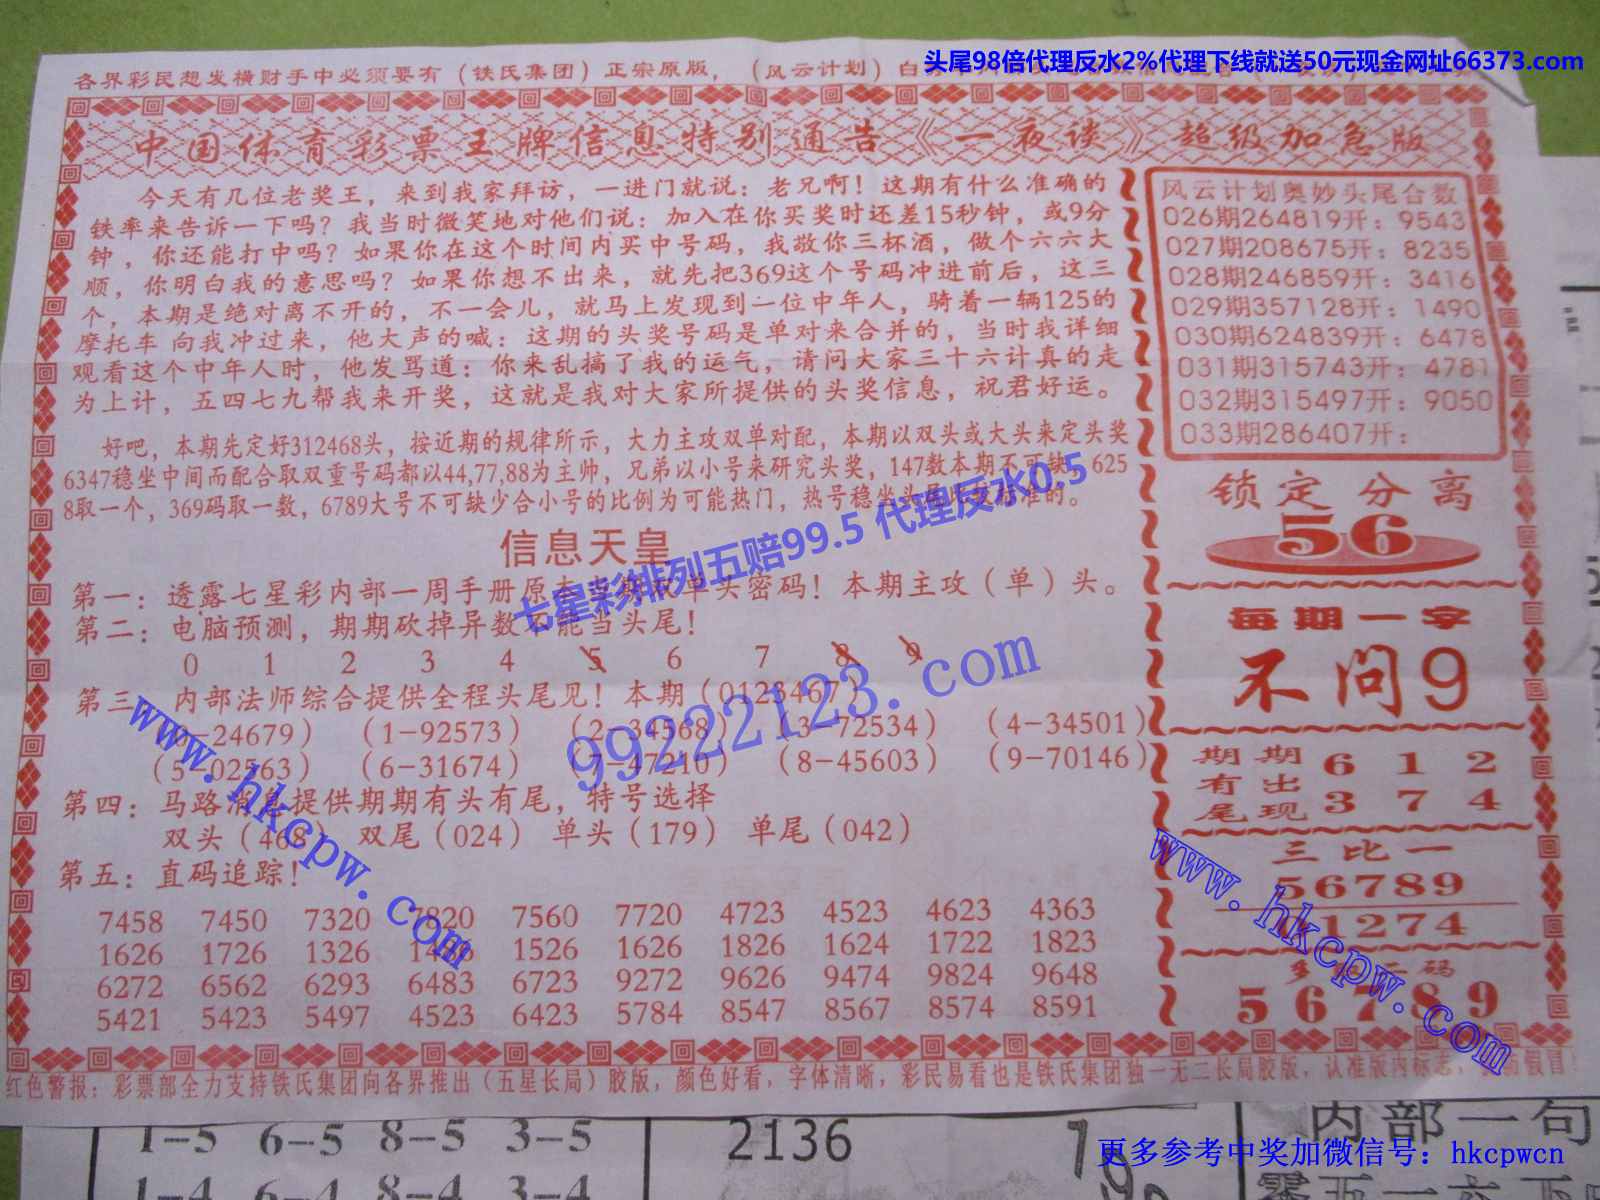 头尾98倍代理反水2%代理下线就送50元现金网址66373.com
各界彩民想发横财手中必须要有（铁氏集团）正宗原版，（风云计划）白
中国体育彩票王牌信息特别通告《一夜谈》超级加急版
今天有几位老奖王，来到我家拜访，一进门就说：老兄啊！这期有什么准确的
铁率来告诉一下吗？我当时微笑地对他们说：加入在你买奖时还差15秒钟，或9分
钟，你还能打中吗？如果你在这个时间内买中号码，我敬你三杯酒，做个六六大
顺，你明白我的意思吗？如果你想不出来，就先把369这个号码冲进前后，这三
个，本期是绝对离不开的，不一会儿，就马上发现到一位中年人，骑着一辆125的
摩托车 向我冲过来，他大声的喊：这期的头奖号码是单对来合并的，当时我详细
观看这个中年人时，他发骂道：你来乱搞了我的运气，请问大家三十六计真的走
为上计，五四七九帮我来开奖，这就是我对大家所提供的头奖信息，祝君好运。
好吧，本期先定好312468头，按近期的规律所示，大力主攻双单对配，本期以双头或大头来定头奖
6347稳坐中间而配合取双重号码都以44,77,88为主帅，兄弟以小号来研究头奖，147数本期不可缺，625
8取一个，369码取一数，6789大号不可缺少合小号的比例为可能热门，热号稳坐头 标准的。
信息天皇
第一：透露七星彩内部一周手册原本 期 单头密码！本期主攻（单）头。
第二：电脑预测，期期砍掉异数不能当头尾！
0 1 2 3 4 5 6 7 8 9
第三：内部法师综合提供全程头尾见！本期（0123467）
（0-24679）（1-92573）（2-34568）（3-72534）（4-34501）
（5-02563）（6-31674）（7-47210）（8-45603）（9-70146）
第四：马路消息提供期期有头有尾，特号选择
双头（468）双尾（024）单头（179）单尾（042）
第五：直码追踪！
7458 7450 7320 7820 7560 7720 4723 4523 4623 4363
1626 1726 1326 1526 1626 1826 1624 1722 1823
6272 6562 6293 6483 6723 9272 9626 9474 9824 9648
5421 5423 5497 4523 6423 5784 8547 8567 8574 8591
风云计划奥妙头尾合数
026期264819开：9543
027期208675开：8235
028期246859开：3416
029期357128开：1490
030期624839开：6478
031期315743开：4781
032期315497开：9050
033期286407开：
锁定分离
56
每期一字
不问9
期期 6 1 2
有出
尾现 3 7 4
三比一
56789
01274
二码
5 6 7 8 9
红色警报：彩票部全力支持铁氏集团向各界推出（五星长局）胶版，颜色好看，字体清晰，彩民易看也是铁氏集团独一无二长局胶版，认准版内标志， 假冒！
七星彩排列五赔99.5 代理反水0.5
99222123.com
www.hkcpw.com
www.hkcpw.com
1-5 6-5 8-5 3-5
2136
内部一句
1-4 6-4 8-4 3-4
更多参考中奖加微信号：hkcpwcn